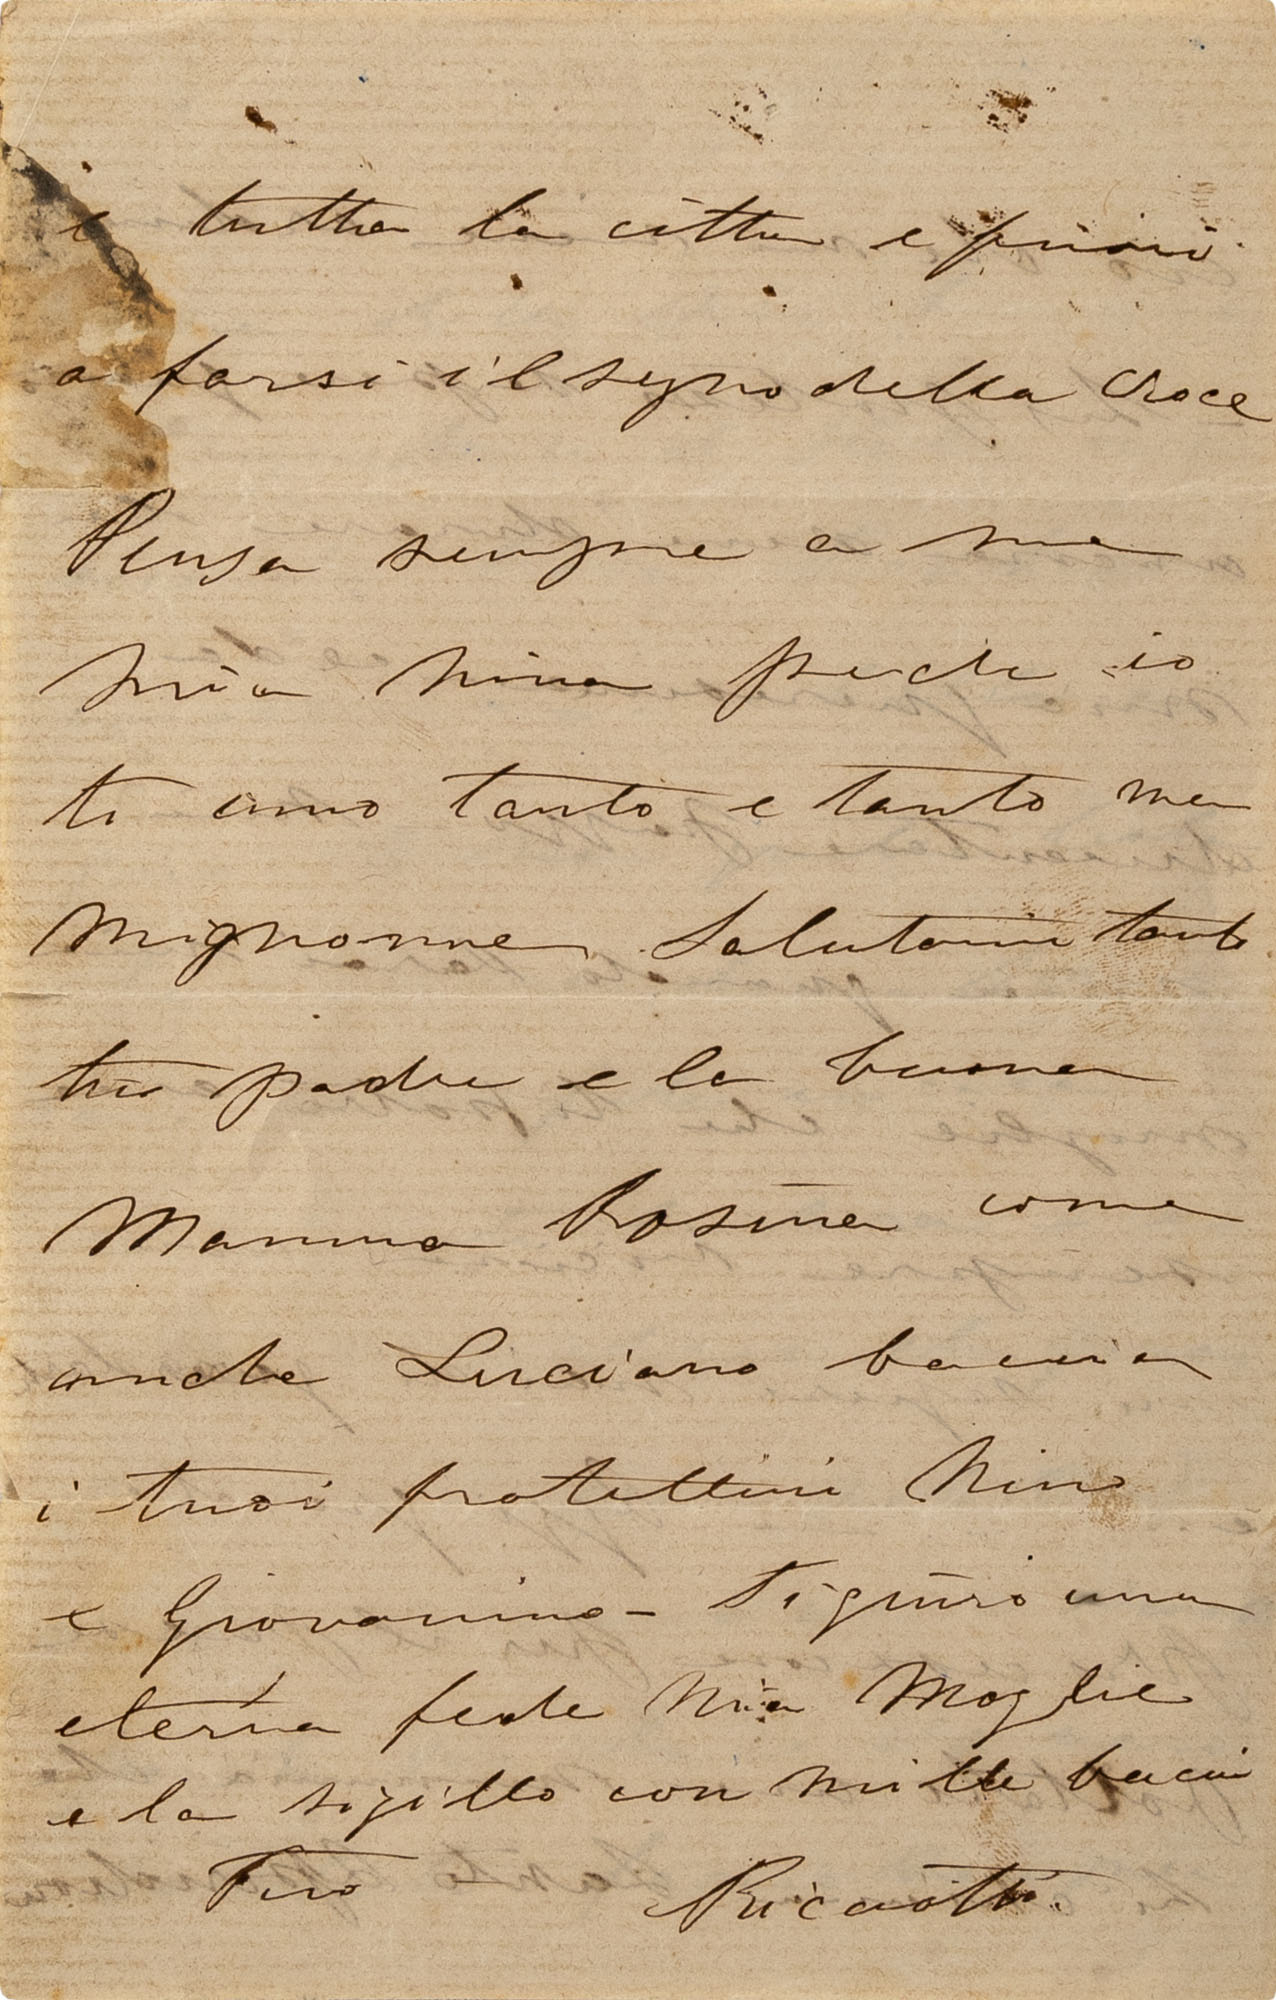 e tutta la citta e
a farsi il segno della Croce
Pensa sempre a me
mia Nina perche io
ti amo tanto e tanto ma
mignonne. Salutami tanto
tuo padre e la buona
Mamma Rosina come
anche Luciano bacia
i tuoi fratellini Nino
e Giovanino - Ti giuro una
eterna fede mia Moglie
e la sigillo con mille bacii
Tuo Ricciotti.